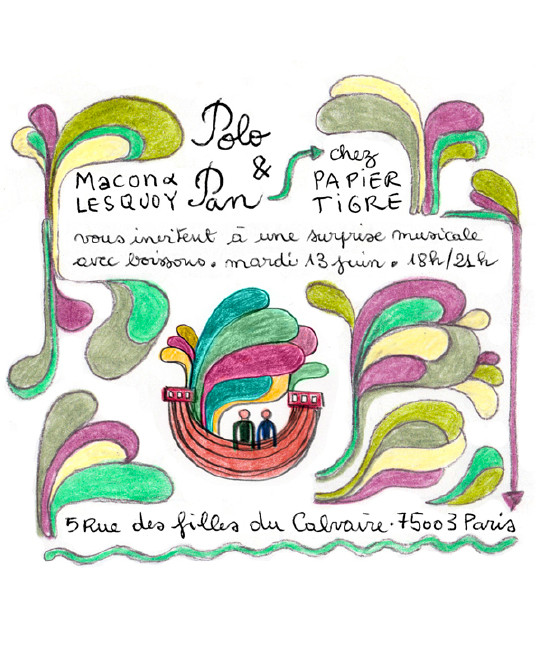 Polo
& chez
Macon & Pan PAPIER
LESQUOY TiGRE
vous invitent à une surprise musicale
avec boissons. mardi 13 juin. 18h/21h
5 Rue des filles du Calvaire. 75003 Paris